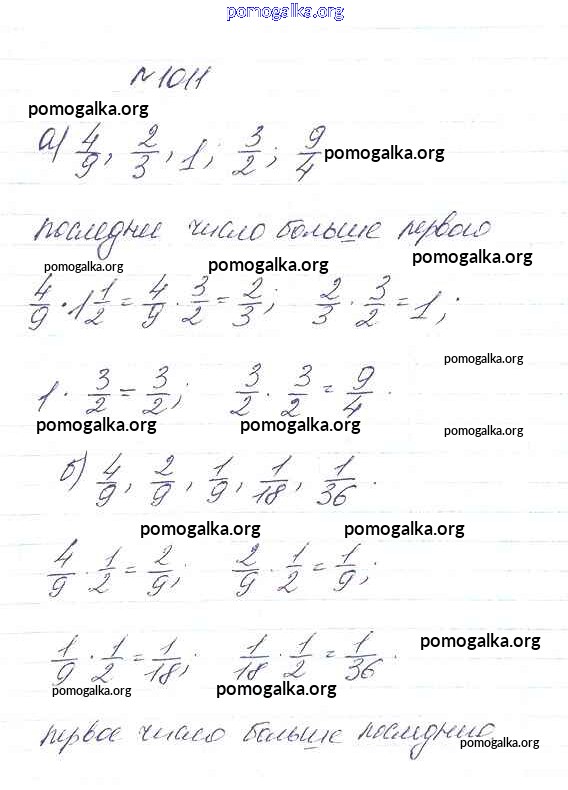 pomogalka.org
№1011
pomogalka.org
а) 4/9, 2/3, 1; 3/2; 9/4 pomogalka.org
последнее число больше первого
pomogalka.org pomogalka.org pomogalka.org
4/9 · 1 1/2 = 4/9 · 3/2 = 2/3; 2/3 · 3/2 = 1;
pomogalka.org
1 · 3/2 = 3/2; 3/2 · 3/2 = 9/4.
pomogalka.org pomogalka.org pomogalka.org
б) 4/9, 2/9, 1/9, 1/18, 1/36.
pomogalka.org pomogalka.org
4/9 · 1/2 = 2/9; 2/9 · 1/2 = 1/9;
1/9 · 1/2 = 1/18; 1/18 · 1/2 = 1/36. pomogalka.org
pomogalka.org pomogalka.org
первое число больше последнего
pomogalka.org